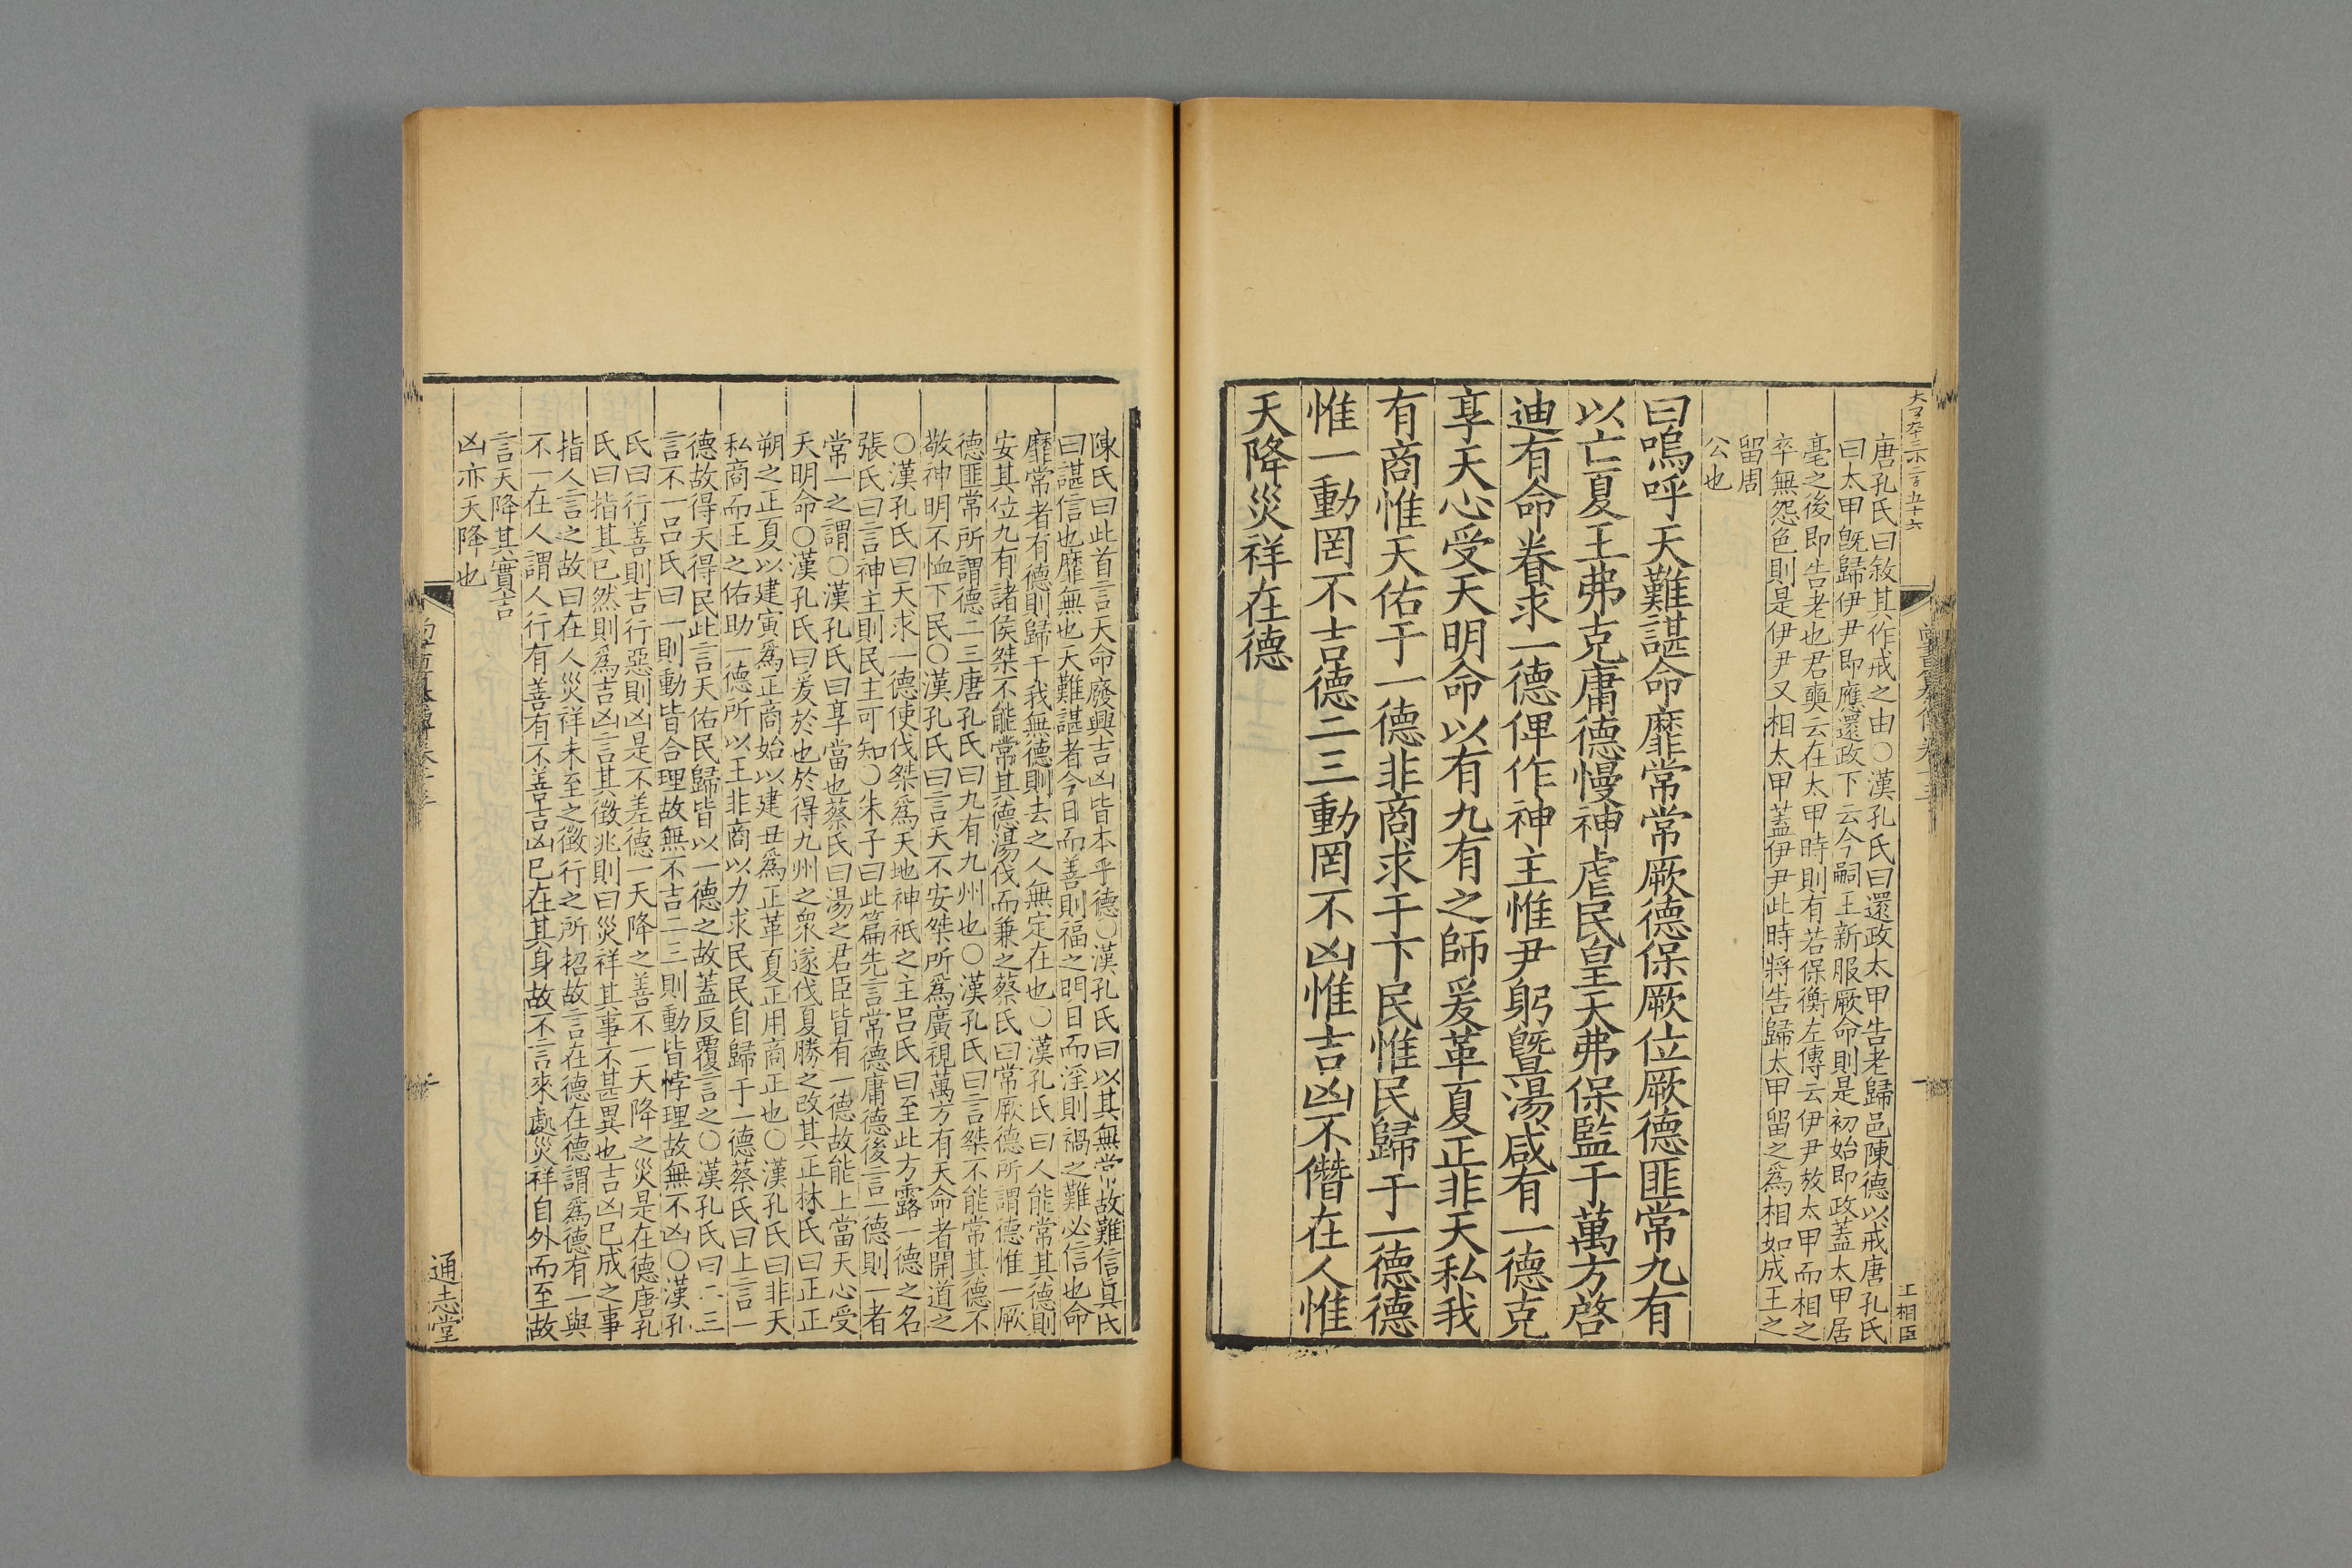 唐孔氏曰敘其作戒之由○漢孔氏曰還政太甲告老歸邑陳德以戒唐孔氏
曰太甲旣歸伊尹即應還政下云今嗣王新服厥命則是初始即政蓋太甲居
亳之後即告老也君奭云在太甲時則有若保衡左傳云伊尹放太甲而相之
卒無怨色則是伊尹又相太甲蓋伊尹此時將告歸太甲留之爲相如成王之
留周
公也
曰嗚呼天難諶命靡常常厥德保厥位厥德匪常九有
以亡夏王弗克庸德慢神虐民皇天弗保監于萬方啓
迪有命眷求一德俾作神主惟尹躬曁湯咸有一德克
享天心受天明命以有九有之師爰革夏正非天私我
有商惟天佑于一德非商求于下民惟民歸于一德德
惟一動罔不吉德二三動罔不凶惟吉凶不僭在人惟
天降災祥在德
王相臣
陳氏曰此首言天命廢興吉凶皆本乎德○漢孔氏曰以其無常故難信眞氏
曰諶信也靡無也天難諶者今日而善則福之明日而淫則禍之難必信也命
靡常者有德則歸于我無德則去之人無定在也○漢孔氏曰人能常其德則
安其位九有諸侯桀不能常其德湯伐而兼之蔡氏曰常厥德所謂德惟一厥
德匪常所謂德二三唐孔氏曰九有九州也○漢孔氏曰言桀不能常其德不
敬神明不恤下民○漢孔氏曰言天不安桀所爲廣視萬方有天命者開道之
○漢孔氏曰天求一德使伐桀爲天地神祇之主呂氏曰至此方露一德之名
張氏曰言神主則民主可知○朱子曰此篇先言常德庸德後言一德則一者
常一之謂○漢孔氏曰享當也蔡氏曰湯之君臣皆有一德故能上當天心受
天明命○漢孔氏曰爰於也於得九州之衆遂伐夏勝之改其正林氏曰正正
朔之正夏以建寅爲正商始以建丑爲正革夏正用商正也○漢孔氏曰非天
私商而王之佑助一德所以王非商以力求民民自歸于一德蔡氏曰上言一
德故得天得民此言天佑民歸皆以一德之故蓋反覆言之○漢孔氏曰二三
言不一呂氏曰一則動皆合理故無不吉二三則動皆悖理故無不凶○漢孔
氏曰行善則吉行惡則凶是不差德一天降之善不一天降之災是在德唐孔
氏曰指其已然則爲吉凶言其徵兆則曰災祥其事不甚異也吉凶已成之事
指人言之故曰在人災祥未至之徵行之所招故言在德在德謂爲德有一與
不一在人謂人行有善有不善吉凶已在其身故不言來處災祥自外而至故
言天降其實吉
凶亦天降也
通志堂